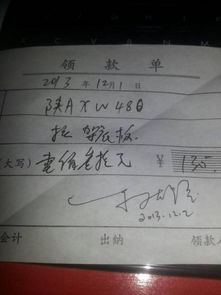 领款单
2013 年 12 月 1 日
陕A XW480
拉 架底板
(大写) 壹佰叁拾元 ¥ 135
2013.12.2
会计 出纳 领款